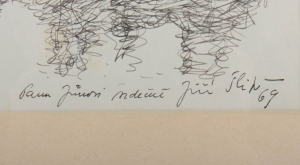 Panu Jírovi srdečně Jiří Šlitr
69